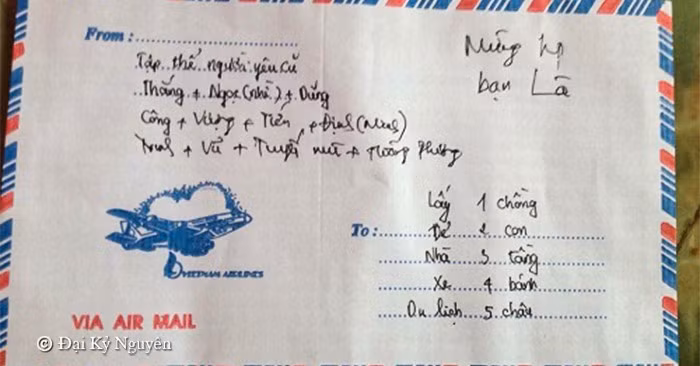 From :
Mừng hp
bạn Là
Tập thể người yêu cũ
Thắng + Ngọc (nhà) + Dũng
Công + Vượng + Tiến + Định (Minh)
+ Vũ + Tuyết + Phương
Lấy 1 chồng
To : Đẻ 2 con
Nhà 3 tầng
Xe 4 bánh
Du lịch 5 châu
VIETNAM AIRLINES
VIA AIR MAIL
© Đại Kỷ Nguyên